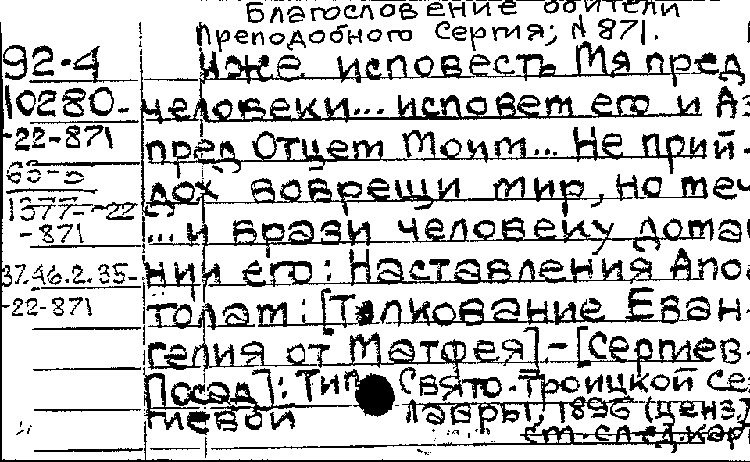 Благословение обители
Преподобного Сергия; N 871.
92-4 Иже исповесть Мя пред
10280- человеки... исповем его и Аз
-22-871 пред Отцем Моим... Не прий-
дох воврещи мир, но меч
1377-22 ... и врази человеку домаш-
-871
37.46.2.35- нии его: Наставления Апос-
-22-871 толам: [Толкование Еван-
гелия от Матфея].-[Сергиев.
Посад]: Тип. Свято-Троицкой Сер-
гиевой лавры, 1896 (ценз.)
см. след. карт